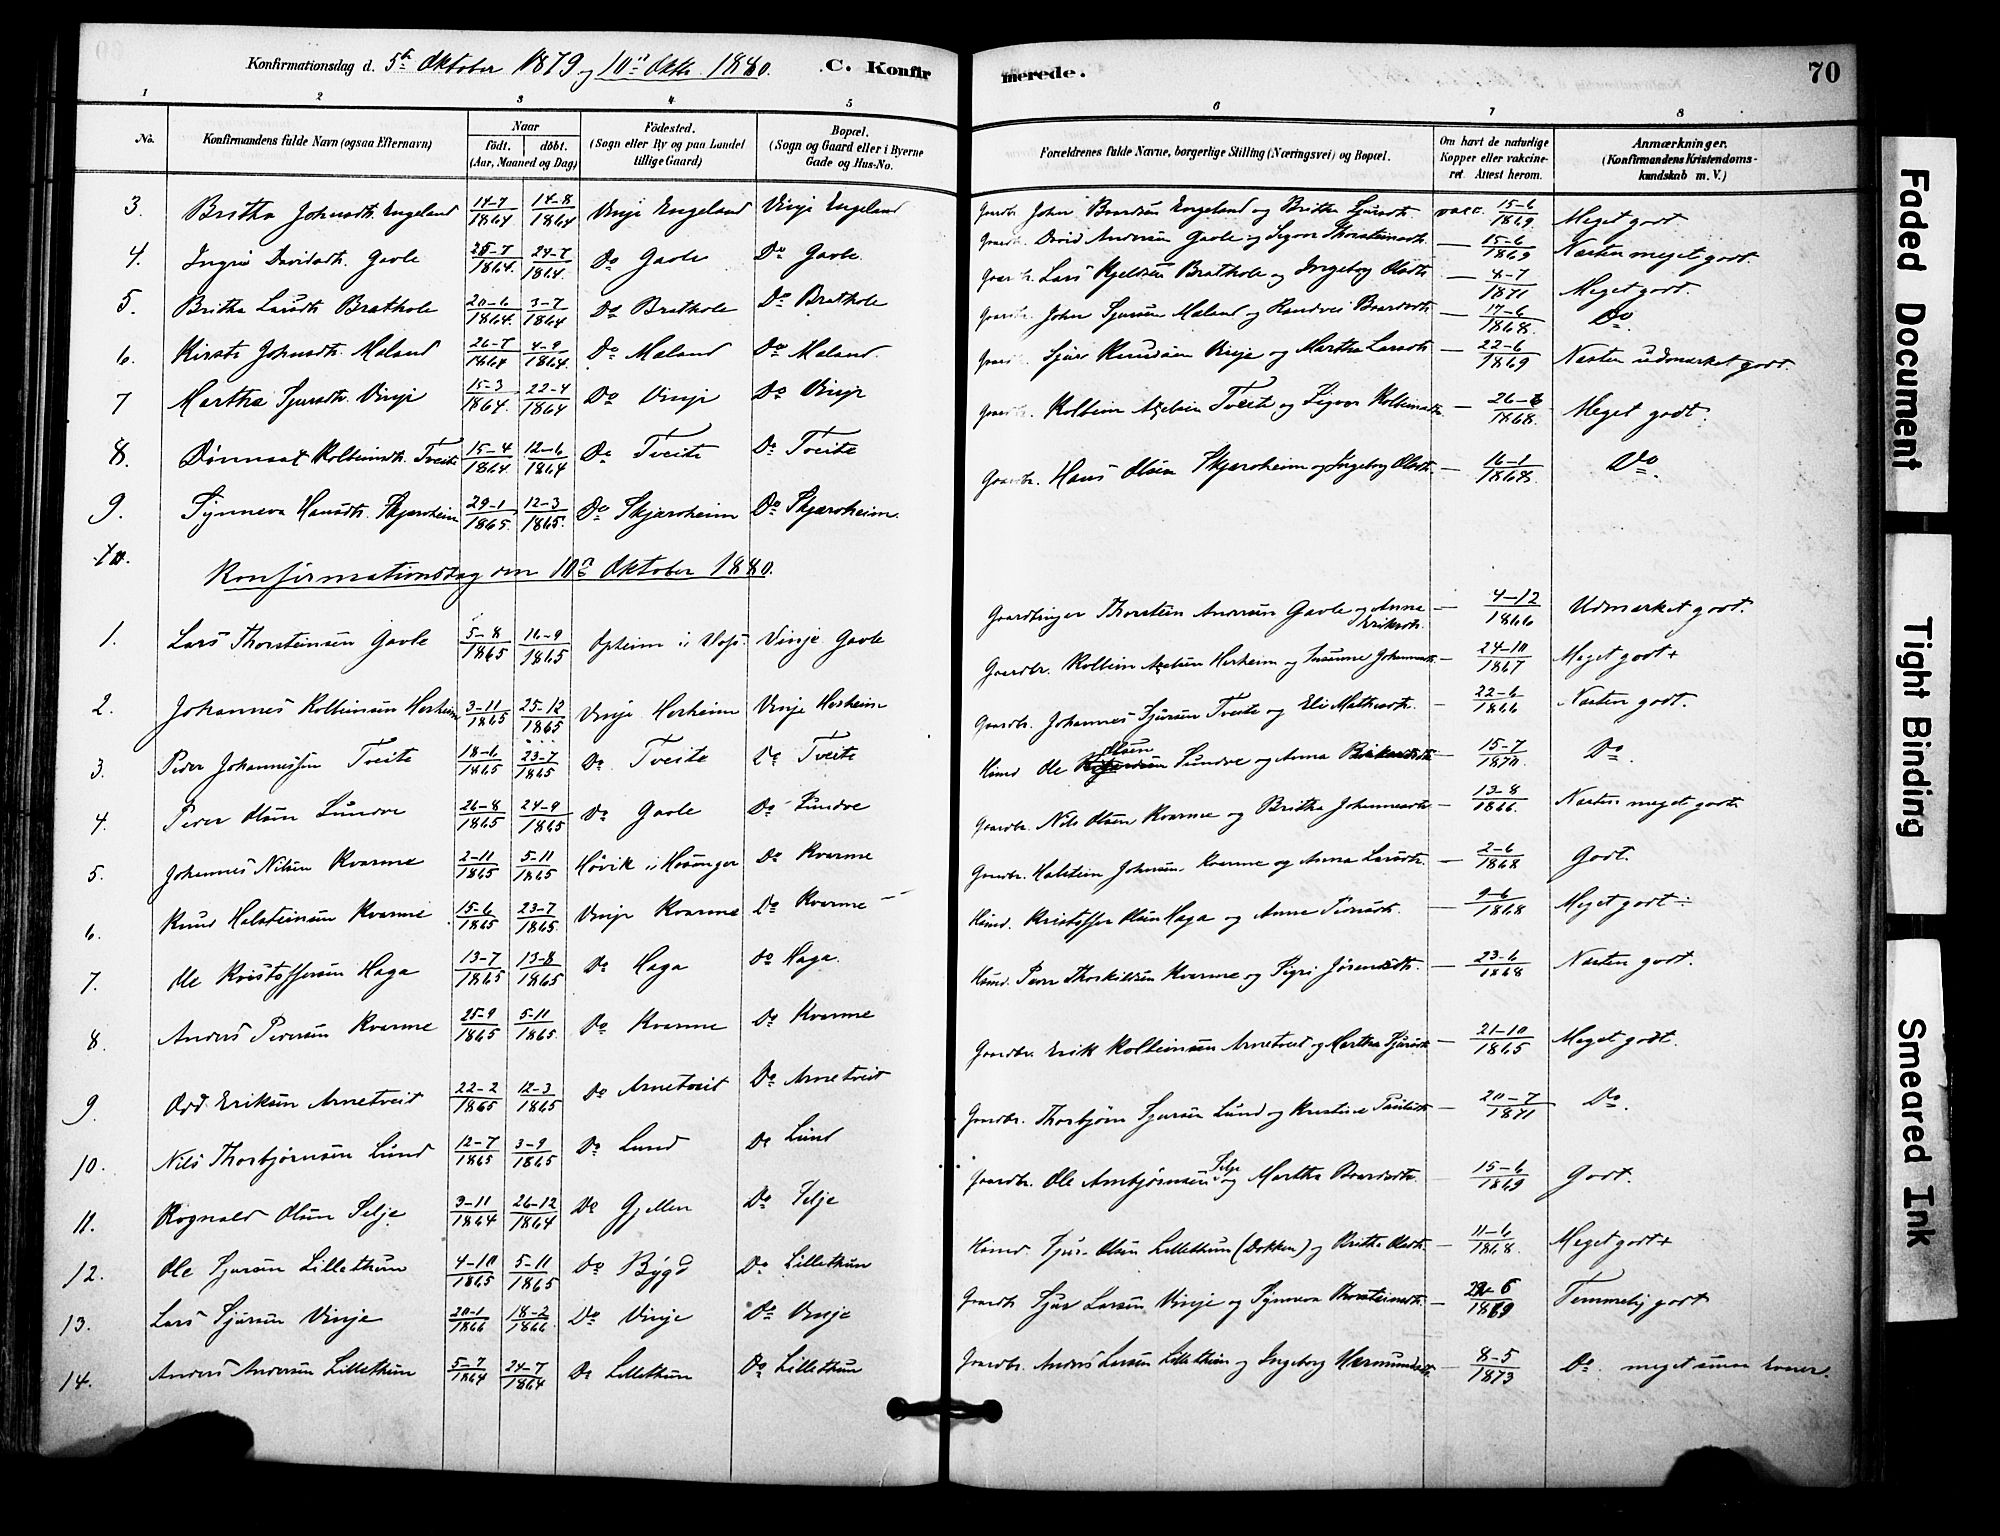 Konfirmationsdag d. 5te Oktober 1879 og 10de Oktbr. 1880. C. Konfirmerede. 70
1 2 3 4 5 6 7 8
No. Konfirmandens fulde Navn (ogsaa Efternavn) Naar født. døbt. (Aar, Maaned og Dag) Födested. (Sogn eller By og paa Landet tillige Gaard) Bopæl. (Sogn og Gaard eller i Byerne Gade og Hus-No. Forældrenes fulde Navne, borgerlige Stilling (Næringsvei) og Bopæl. Om havt de naturlige Kopper eller vakcineret. Attest herom. Anmærkninger. (Konfirmandens Kristendomskundskab m. V.)
3. Britha Johnsdtr. Engeland 14-7 1864 14-8 1864 Vinje Engeland Vinje Engeland Gaardbr. John Baardsen Engeland og Britha Sjursdtr. vacc. 15-6 1869 Meget godt.
4. Ingri Davidsdtr. Gavle 25-7 1864. 24-7 1864. Do Gavle Do Gavle. Gaardbr. David Andersen Gavle og Sigvor Thorsteinsdtr. — 15-6 1869 Næsten meget godt.
5. Britha Larsdtr Brathole 20-6 1864. 3-7 1864 Do Brathole Do Brathole Gaardbr. Lars Kjeldsen Brathole og Ingeborg Olsdtr. — 4-7 1871 Meget godt.
6. Kirsti Johnsdtr. Maland 26-7 1864 4-9 1864 Do Maland Do Maland. Gaardbr. John Sjursen Maland og Randvei Baardsdtr. — 17-6 1868. Do.
7 Martha Sjursdtr. Vinje 15-3 1864. 22-4 1864 Do Vinje Do Vinje Gaardbr. Sjur Knudsen Vinje og Martha Larsdtr. — 22-6 1869 Næsten udmærket godt.
8. Kolbeinsdtr. Tveite 15-4 1864 12-6 1864 Do Tveite Do Tveite Gaardbr. Kolbein Tveite og Sigvor Kolbeinsdtr. — 26-6 1868. Meget godt.
9. Synneva Hansdtr. Skjærheim 29-1 1865. 12-3 1865. Do Skjærheim Do Skjærheim. Gaardbr. Hans Olsen Skjærheim og Ingeborg Olsdtr. — 16-1 1868. Do.
10.
Konfirmationsdag den 10de Oktober 1880.
1. Lars Thorsteinsen Gavle 5-8 1865 16-9 1865 Opheim i Vos. Vinje Gavle Gaardbruger Thorstein Andersen Gavle og Anna Eriksdtr. — 4-12 1866 Udmærket godt.
2. Johannes Kolbeinsen Herheim 3-11 1865 25-12 1865 Vinje Herheim Vinje Herheim Gaardbr. Kolbein Herheim og Susanne Johannesdtr. — 24-10 1867 Meget godt+
3. Peder Johannessen Tveite 18-6 1865 23-7 1865 Do Tveite Do Tveite Gaardbr. Johannes Sjursen Tveite og Eli Mathisdtr. — 22-6 1866 Næsten godt.
4. Peder Olsen Sundve 26-8 1865 24-9 1865 Do Gavle Do Sundve Husmd. Ole Olsen Sundve og Anna — 15-7 1870. Do.
5. Johannes Nilsen Kvarme 2-11 1865 5-11 1865 Høvik i Hosanger Do Kvarme Gaardbr. Nils Olsen Kvarme og Britha Johannesdtr. — 13-8 1866. Næsten meget godt.
6. Knud Halsteinsen Kvarme 15-6 1865 23-7 1865. Vinje Kvarme Do Kvarme — Gaardbr. Halstein Johnsen Kvarme og Anna Larsdtr. — 2-6 1868 Godt.
7. Ole Kristoffersen Haga 13-7 1865 13-8 1865 Do Haga Do Haga. Husmd. Kristoffer Olsen Haga og Anna Pedersdtr. — 9-6 1868 Meget godt ÷
8. Anders Pedersen Kvarme 25-9 1865 5-11 1865. Do Kvarme Do Kvarme Husmd. Peder Thorkildsen Kvarme og Sigri Jørensdtr. — 23-6 1868 Næsten godt.
9. Odd Eriksen Arnetveit 22-2 1865 12-3 1865 Do Arnetveit Do Arnetveit Gaardbr. Erik Kolbeinsen Arnetveit og Martha Sjursdtr. — 21-10 1865 Meget godt.
10. Nils Thorbjørnsen Lund 12-7 1865 3-9 1865 Do Lund Do Lund Gaardbr. Thorbjørn Sjursen Lund og Kristine Paulsdtr. — 20-7 1871 Do.
11. Rognald Olsen Selje 3-11 1864 26-12 1864 Do Gjellen Do Selje Gaardbr. Ole Arnbjørnsen Selje og Martha Baardsdtr. — 15-6 1869 Godt.
12. Ole Sjursen Lillethun 4-10 1865 5-11 1865 Do Bygd Do Lillethun Husmd. Sjur Olsen Lillethun (Dokken) og Britha Olsdtr. — 11-6 1868. Meget godt+
13. Lars Sjursen Vinje 20-1 1866 18-2 1866 Do Vinje Do Vinje Gaardbr. Sjur Larsen Vinje og Synneva Thorsteinsdtr. — 22-6 1869 Temmelig godt
14. Anders Andersen Lillethun 5-7 1864 24-7 1864 Do Lillethun Do Lillethun Gaardbr. Anders Larsen Lillethun og Ingeborg Hermundsdtr. — 8-5 1873 Do. meget smaa Evner.
Faded Document
Tight Binding
Smeared Ink